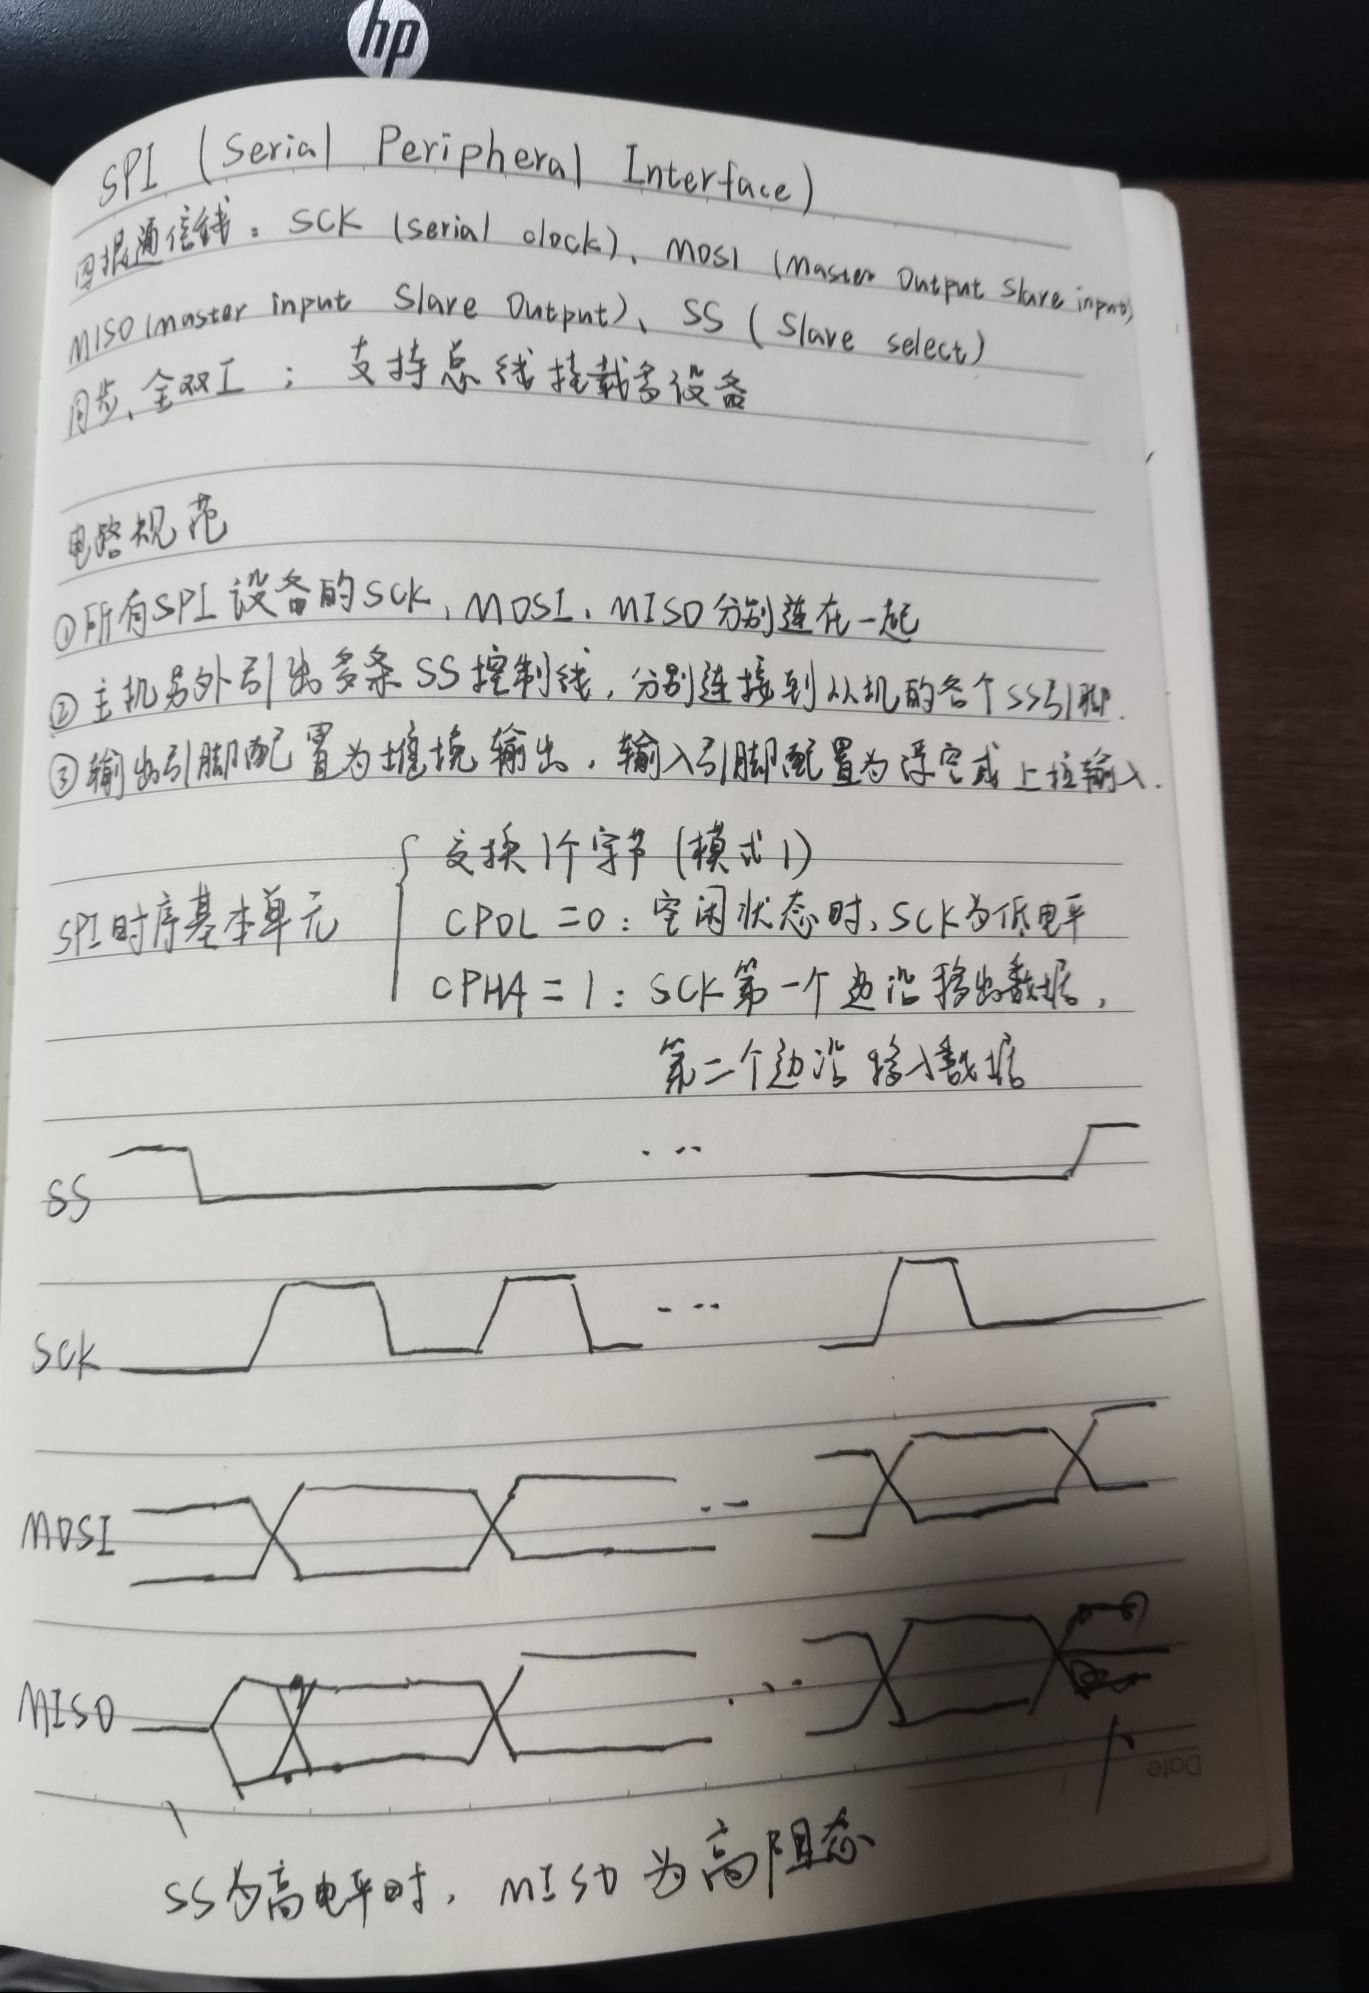 hp
SPI (Serial Peripheral Interface)
四根通信线：SCK (serial clock)、MOSI (Master Output Slave input)、
MISO (master input Slave Output)、SS (Slave select)
同步、全双工；支持总线挂载多设备
电路规范
①所有SPI设备的SCK、MOSI、MISO分别连在一起
②主机另外引出多条SS控制线，分别连接到从机的各个SS引脚.
③输出引脚配置为推挽输出，输入引脚配置为浮空或上拉输入.
交换1个字节(模式1)
SPI时序基本单元
CPOL=0：空闲状态时，SCK为低电平
CPHA=1：SCK第一个边沿移出数据，
第二个边沿移入数据
SS ...
SCK ...
MOSI ...
MISO ...
Date
SS为高电平时，MISO为高阻态